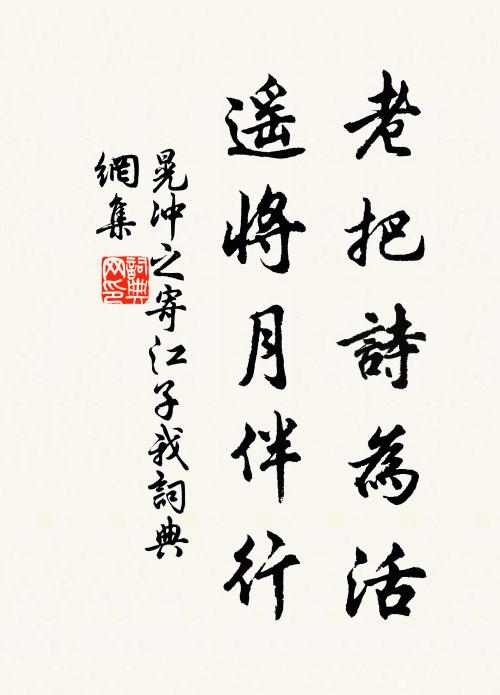 老把詩為活
遥將月伴行
晃沖之寄江子我詞典
網集
詞典
网印